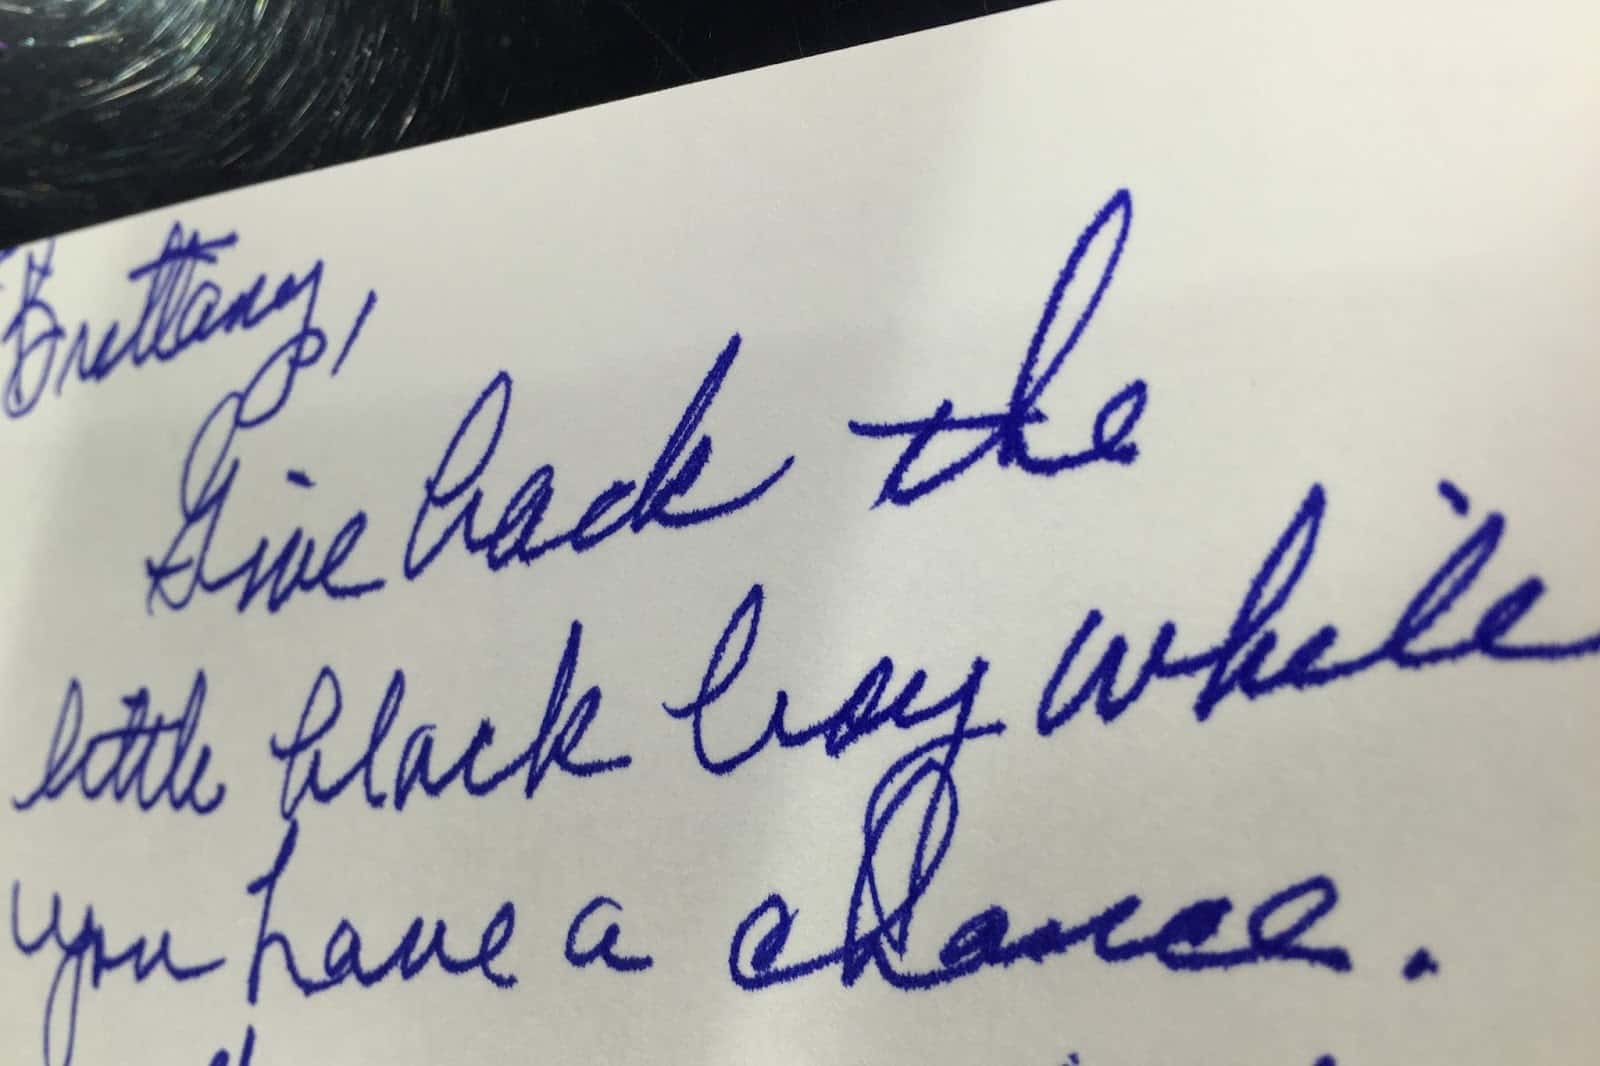 Brittany,
Give back the
little black boy while
you have a chance.